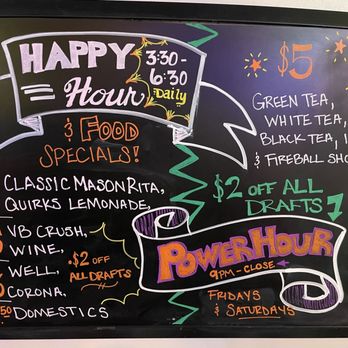 HAPPY
Hour
3:30-
6:30
Daily
& FOOD
SPECIALS!
CLASSIC MASON RITA,
QUIRKS LEMONADE,
VB CRUSH,
WINE,
WELL,
CORONA,
50 DOMESTICS
$2 OFF
ALL DRAFTS
$5
GREEN TEA,
WHITE TEA,
BLACK TEA,
& FIREBALL
$2 OFF ALL
DRAFTS
POWER HOUR
9PM-CLOSE
FRIDAYS
& SATURDAYS